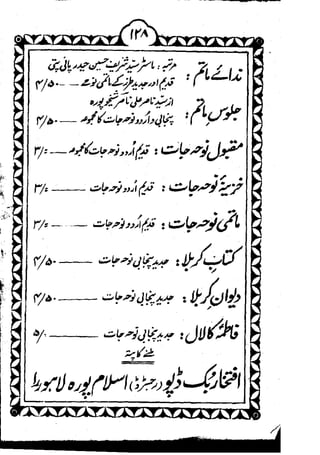 ۱۲۸
ندائے ماتم : مرتبہ : ماسٹر سید شرافت حسین حیدر پانی پتی
قدیم اور جدید طرز کے ماتمی نوحے — ۴/۵۰
جلوسِ ماتم : از سید ناصر علی ناصر شیخوپورہ
پنجابی و اُردو نوحہ جات کا مجموعہ — ۴/۵۰
مقبول نوحہ جات : قدیم اُردو نوحہ جات کا مجموعہ — ۳/۰
خزینۂ نوحہ جات : قدیم اُردو نوحہ جات — ۳/۰
ماتمی نوحہ جات : قدیم اُردو نوحہ جات — ۳/۰
کتابِ کربلا : جدید پنجابی نوحہ جات — ۴/۵۰
دیوانِ کربلا : جدید پنجابی نوحہ جات — ۴/۵۰
فاطمہؑ کا لال : جدید پنجابی نوحہ جات — ۵/۰
ملنے کا پتہ
افتخار بک ڈپو (رجسٹرڈ) اسلام پورہ لاہور ۱